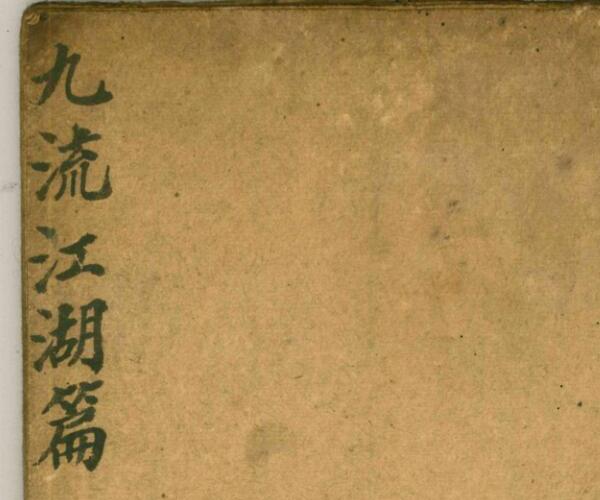 九流江湖篇